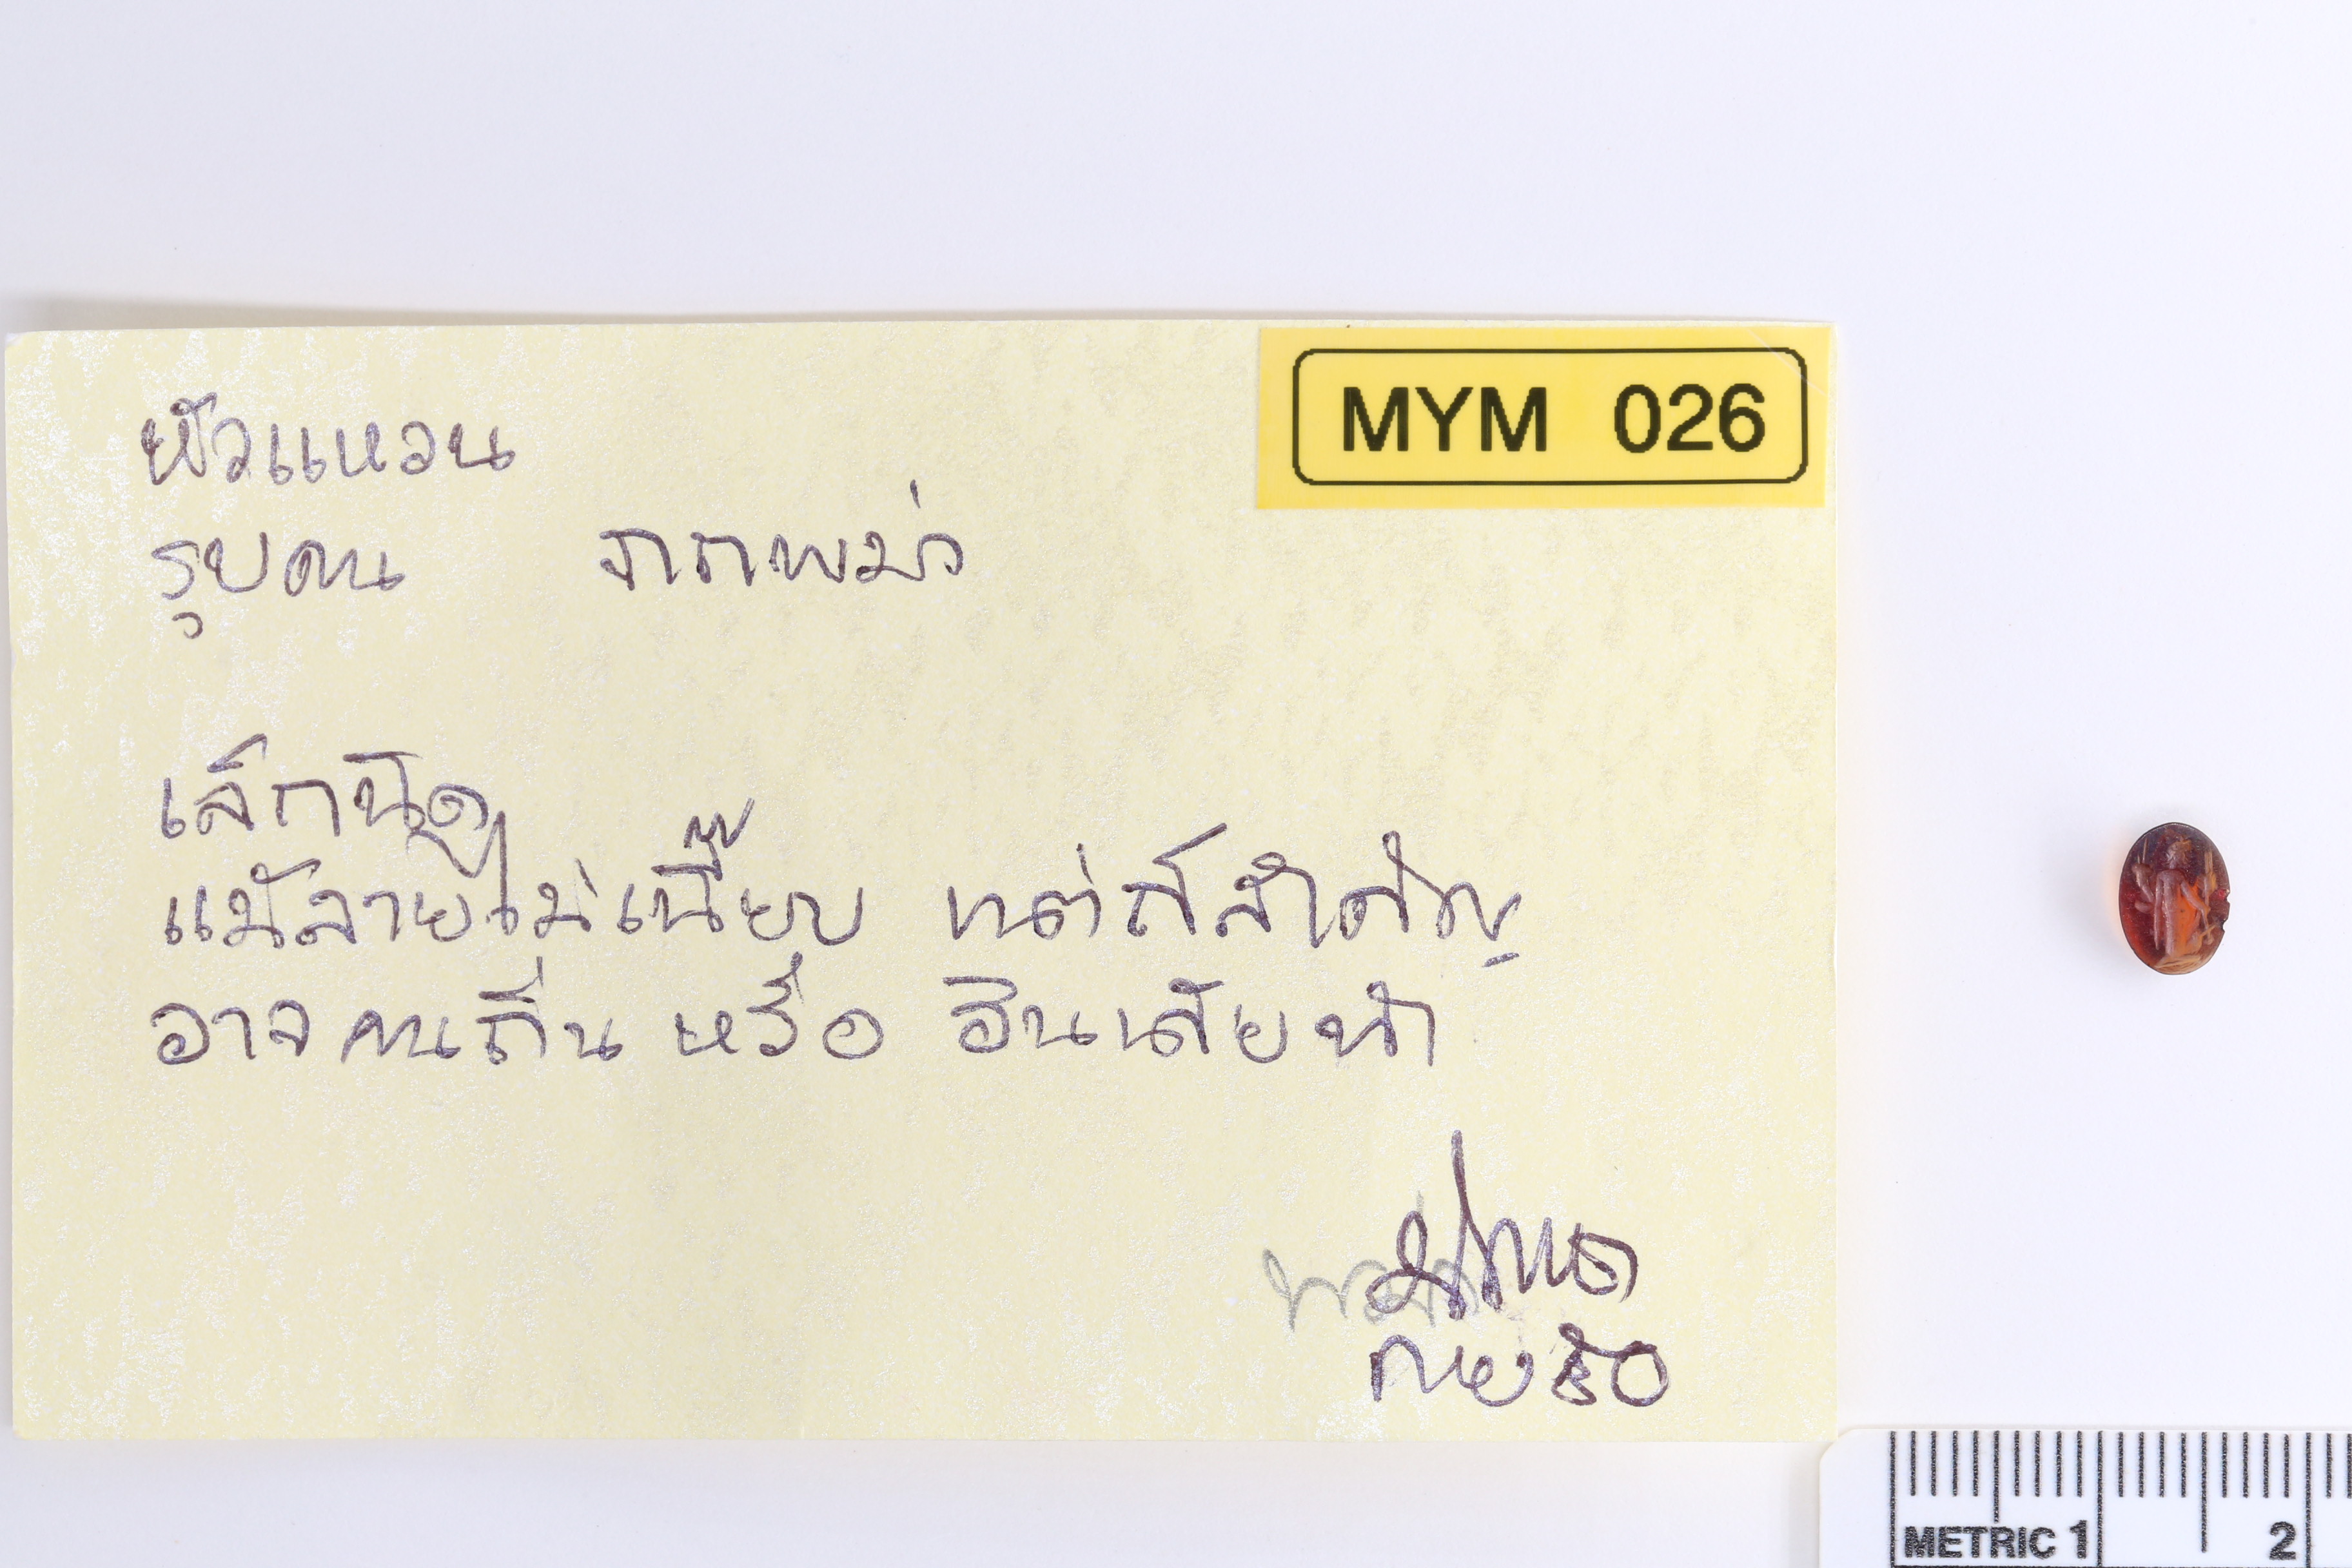 MYM 026
หัวแหวน
รูปคน จากพม่า
เล็กนิด
แม้ลายไม่เนี๊ยบ แต่ก็สำคัญ
อาจคนถิ่น หรือ อินเดียทำ
METRIC 1 2